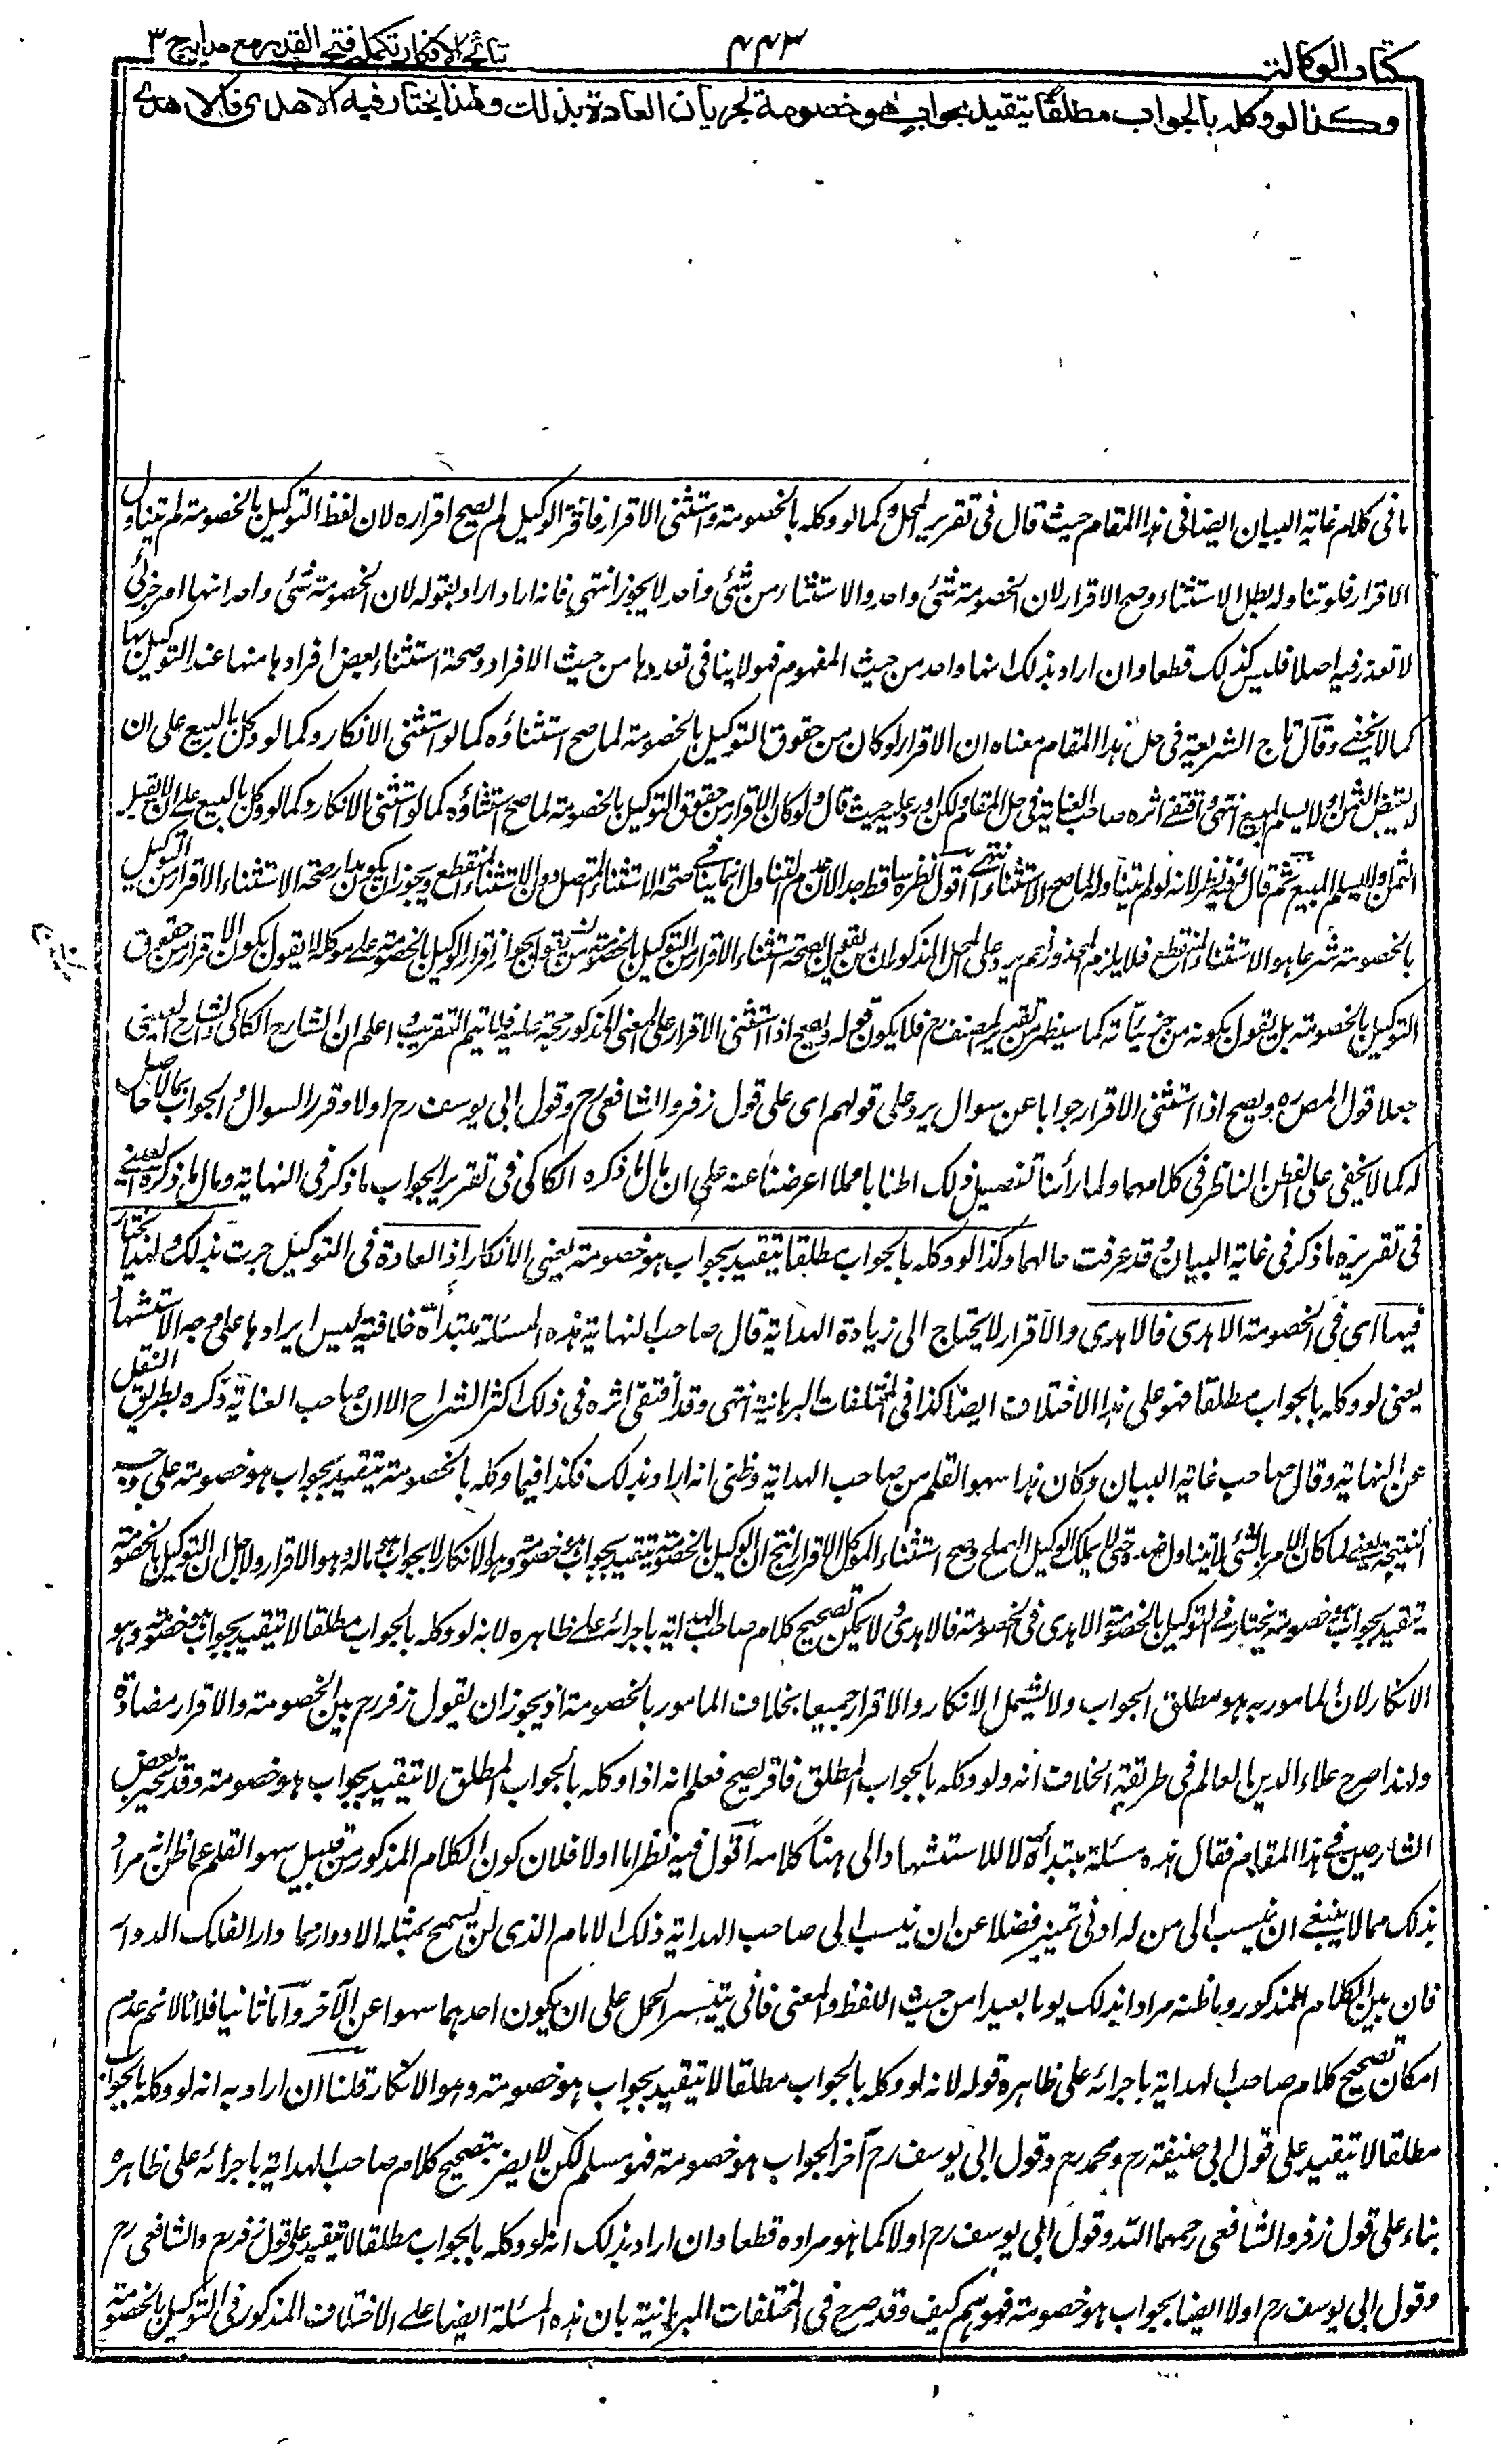 كتاب الوكالة
٤٤٣
نتائج الافكار تكمله فتح القدير مع هدايه ج ٣
وكذا لو وكله بالجواب مطلقا يتقيد بجواب هو خصومة لجريان العادة بذلك ولهذا يختار فيه الاهدى فالاهدى
ما فى كلام غاية البيان ايضا فى هذا المقام حيث قال فى تقرير المحل وكما لو وكله بالخصومة واستثنى الاقرار فاقر الوكيل لم يصح اقراره لان لفظ التوكيل بالخصومة لم يتناول
الاقرار فلو تناوله لبطل الاستثناء وصح الاقرار لان الخصومة شئ واحد والاستثناء من شئ واحد لا يجوز انتهى فانه اراد اراد بقوله لان الخصومة شئ واحد انها امر جزئى
لا تعدد فيه اصلا فليس كذلك قطعا وان اراد بذلك انها واحد من حيث المفهوم فهو لا ينافى تعددها من حيث الافراد وصحة استثناء بعض افرادها منها عند التوكيل بها
كما لا يخفى وقال تاج الشريعة فى حل هذا المقام معناه ان الاقرار لو كان من حقوق التوكيل بالخصومة لما صح استثناؤه كما لو استثنى الانكار وكما لو وكل بالبيع على ان
لا يقبض الثمن او لا يسلم المبيع انتهى واقتفى اثره صاحب العناية فى حل المقام لكن اورد عليه حيث قال ولو كان الاقرار من حقوق التوكيل بالخصومة لما صح استثناؤه كما لو استثنى الانكار وكما لو وكل بالبيع على ان لا يقبل
الثمن او لا يسلم المبيع ثم قال وفيه نظر لانه لو لم يتناوله لما صح الاستثناء انتهى اقول نظره ساقط جدا لان عدم التناول انما ينافى صحة الاستثناء المتصل دون الاستثناء المنقطع ويجوز ان يكون مدار صحة الاستثناء الاقرار من التوكيل
بالخصومة شرعا هو الاستثناء المنقطع فلا يلزم المحذور نعم يرد على المحل المذكور ان من يقول بصحة استثناء الاقرار من التوكيل بالخصومة ممن يقول بجواز اقرار الوكيل بالخصومة على موكله لا يقول بكون الاقرار من حقوق
التوكيل بالخصومة بل يقول بكونه من جزئياته كما سيظهر من تقرير المصنف رح فلا يكون قوله ويصح اذا استثنى الاقرار على المعنى المذكور حجة عليه فلا يتم التقريب واعلم ان الشارح الكاكى والشارح العينى
جعلا قول المص ره ويصح اذا استثنى الاقرار جوابا عن سوال يرد على قولهم اى على قول زفر والشافعى رح وقول ابى يوسف رح اولا وقرر السوال والجواب بما لا حاصل
له كما لا يخفى على الفطن الناظر فى كلامهما ولما رأينا تفصيل ذلك اطنابا مملا اعرضنا عنه على ان مال ما ذكره الكاكى فى تقرير الجواب ما ذكر فى النهاية ومال ما ذكره العينى
فى تقريره ما ذكر فى غاية البيان وقد عرفت حالهما وكذا لو وكله بالجواب مطلقا يتقيد بجواب هو خصومة يعنى الانكار اذ العادة فى التوكيل جرت بذلك ولهذا يختار
فيها اى فى الخصومة الاهدى فالاهدى والاقرار لا يحتاج الى زيادة الهداية قال صاحب النهاية هذه المسئلة مبتدأة خلافية ليس ايرادها على وجه الاستشهاد
يعنى لو وكله بالجواب مطلقا فهو على هذا الاختلاف ايضا كذا فى المختلفات البرهانية انتهى وقد اقتفى اثره فى ذلك اكثر الشراح الا ان صاحب العناية ذكره بطريق النقل
عن النهاية وقال صاحب غاية البيان وكان هذا سهو القلم من صاحب الهداية وظنى انه اراد بذلك فكذا فيما وكله بالخصومة يتقيد بجواب هو خصومة على وجه
النتيجة يعنى لما كان الامر بالشئ لا يتناول ضده حتى لا يملك الوكيل الصلح وصح استثناء الموكل الاقرار انتج ان الوكيل بالخصومة يتقيد بجواب هو خصومة وهو الانكار لا بجواب هو مسالمة وهو الاقرار ولاجل ان التوكيل بالخصومة
يتقيد بجواب هو خصومة يختار فى التوكيل بالخصومة الاهدى فى الخصومة فالاهدى ولا يمكن تصحيح كلام صاحب الهداية باجرائه على ظاهره لانه لو وكله بالجواب مطلقا لا يتقيد بجواب هو خصومة وهو
الانكار لان المامور به هو مطلق الجواب ولا يشمل الانكار والاقرار جميعا بخلاف المامور بالخصومة اذ يجوز ان يقول زفر رح بين الخصومة والاقرار مضادة
ولهذا صرح علاء الدين العالم فى طريقة الخلاف انه ولو وكله بالجواب المطلق فاقر يصح فعلم انه اذا وكله بالجواب المطلق لا يتقيد بجواب هو خصومة وقد تحير بعض
الشارحين فى هذا المقام فقال هذه مسئلة مبتدأة لا للاستشهاد الى هنا كلامه اقول فيه نظر اما اولا فلان كون الكلام المذكور من قبيل سهو القلم عما ظن انه مراد
بذلك مما لا ينبغى ان ينسب الى من له ادنى تميز فضلا عن ان ينسب الى صاحب الهداية ذلك الامام الذى لن تسمح بمثله الادوار ما دار الفلك الدوار
فان بين الكلام المذكور وما ظنه مرادا بذلك بونا بعيدا من حيث اللفظ والمعنى فانى يتيسر الحمل على ان يكون احدهما سهوا عن الآخر واما ثانيا فلانا لا نم عدم
امكان تصحيح كلام صاحب الهداية باجرائه على ظاهره قوله لانه لو وكله بالجواب مطلقا لا يتقيد بجواب هو خصومة وهو الانكار قلنا ان اراد به انه لو وكله بالجواب
مطلقا لا يتقيد على قول ابى حنيفة رح ومحمد رح وقول ابى يوسف رح آخرا بجواب هو خصومة فهو مسلم لكن لا يضر بتصحيح كلام صاحب الهداية باجرائه على ظاهره
بناء على قول زفر والشافعى رحمهما الله وقول ابى يوسف رح اولا كما هو مراده قطعا وان اراد بذلك انه لو وكله بالجواب مطلقا لا يتقيد على قول زفر رح والشافعى رح
وقول ابى يوسف رح اولا ايضا بجواب هو خصومة فهو مم كيف وقد صرح فى المختلفات البرهانية بان هذه المسئلة ايضا على الاختلاف المذكور فى التوكيل بالخصومة